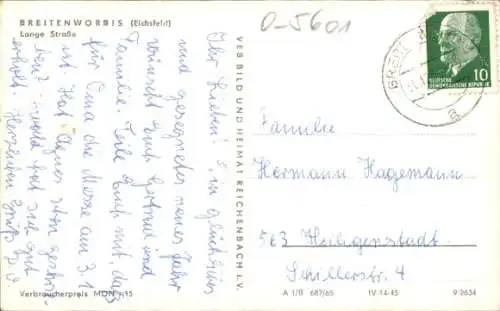 BREITENWORBIS (Eichsfeld)
Lange Straße
O-5601
Ihr Lieben! Ein glückliches
und gesegnetes neues Jahr
wünscht Euch Gertrud und
Familie. Teile Euch mit, daß
für Oma die Messe am 3.1.
ist. Hat Agnes schon geschrie-
ben? wohl hat sie gut
erholt. Herzlichen Gruß
VEB BILD UND HEIMAT REICHENBACH i.V.
10
DEUTSCHE
DEMOKRATISCHE REPUBLIK
Familie
Hermann Hagemann
563 Heiligenstadt
Schillerstr. 4
Verbraucherpreis MDN -,15
A 1/B 687/65 IV-14-45 9 2634